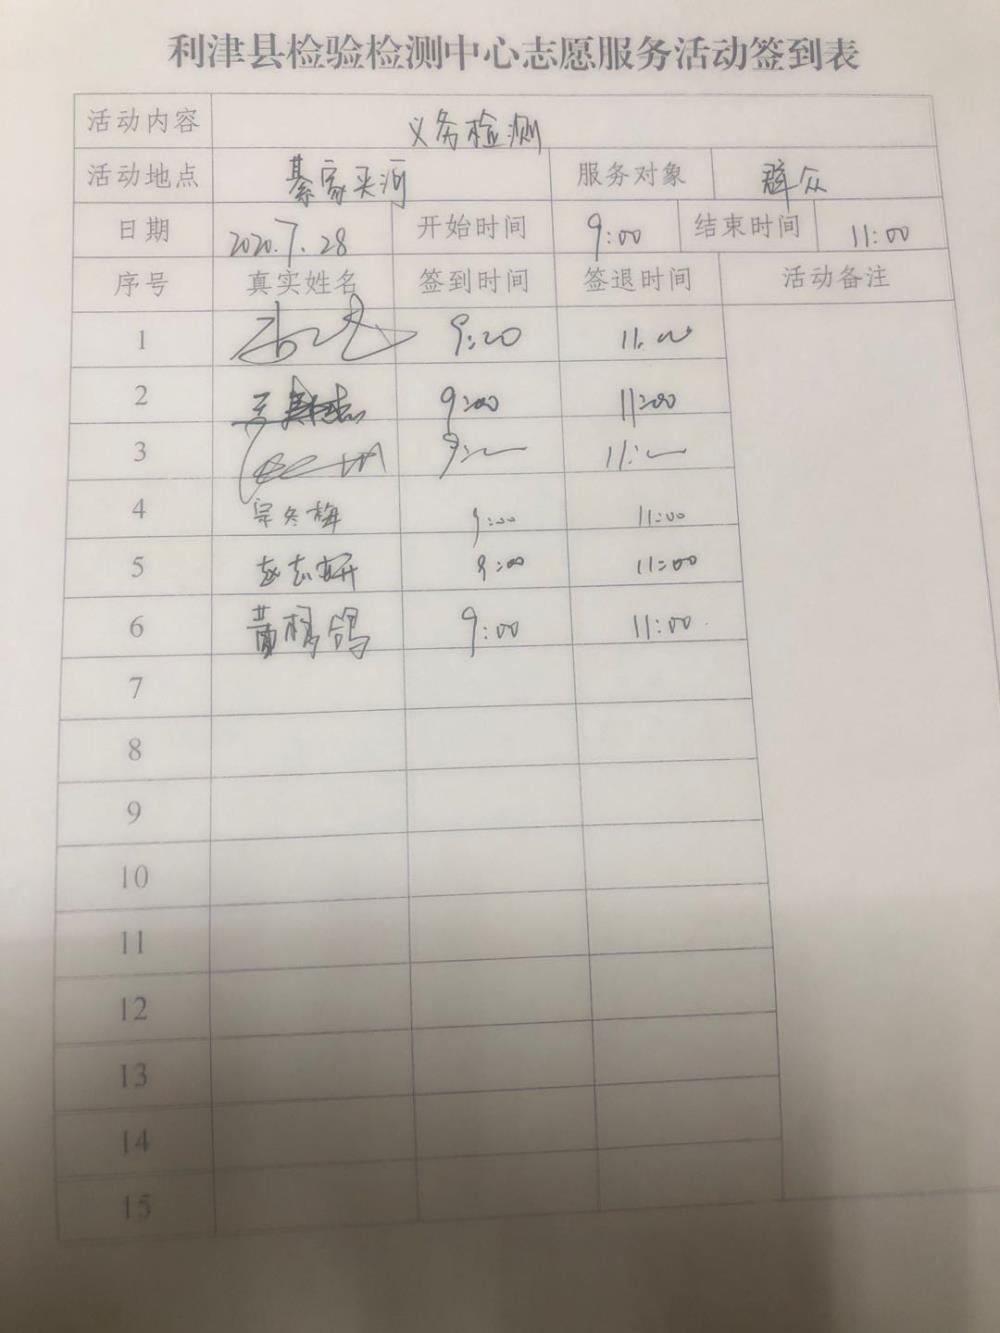 利津县检验检测中心志愿服务活动签到表
活动内容 义务检测
活动地点 綦家夹河 服务对象 群众
日期 2020.7.28 开始时间 9:00 结束时间 11:00
序号 真实姓名 签到时间 签退时间 活动备注
1 9:20 11:00
2 9:00 11:00
3 9: 11:
4 宗冬梅 9:00 11:00
5 赵志妍 9:00 11:00
6 黄杨鸽 9:00 11:00
7
8
9
10
11
12
13
14
15